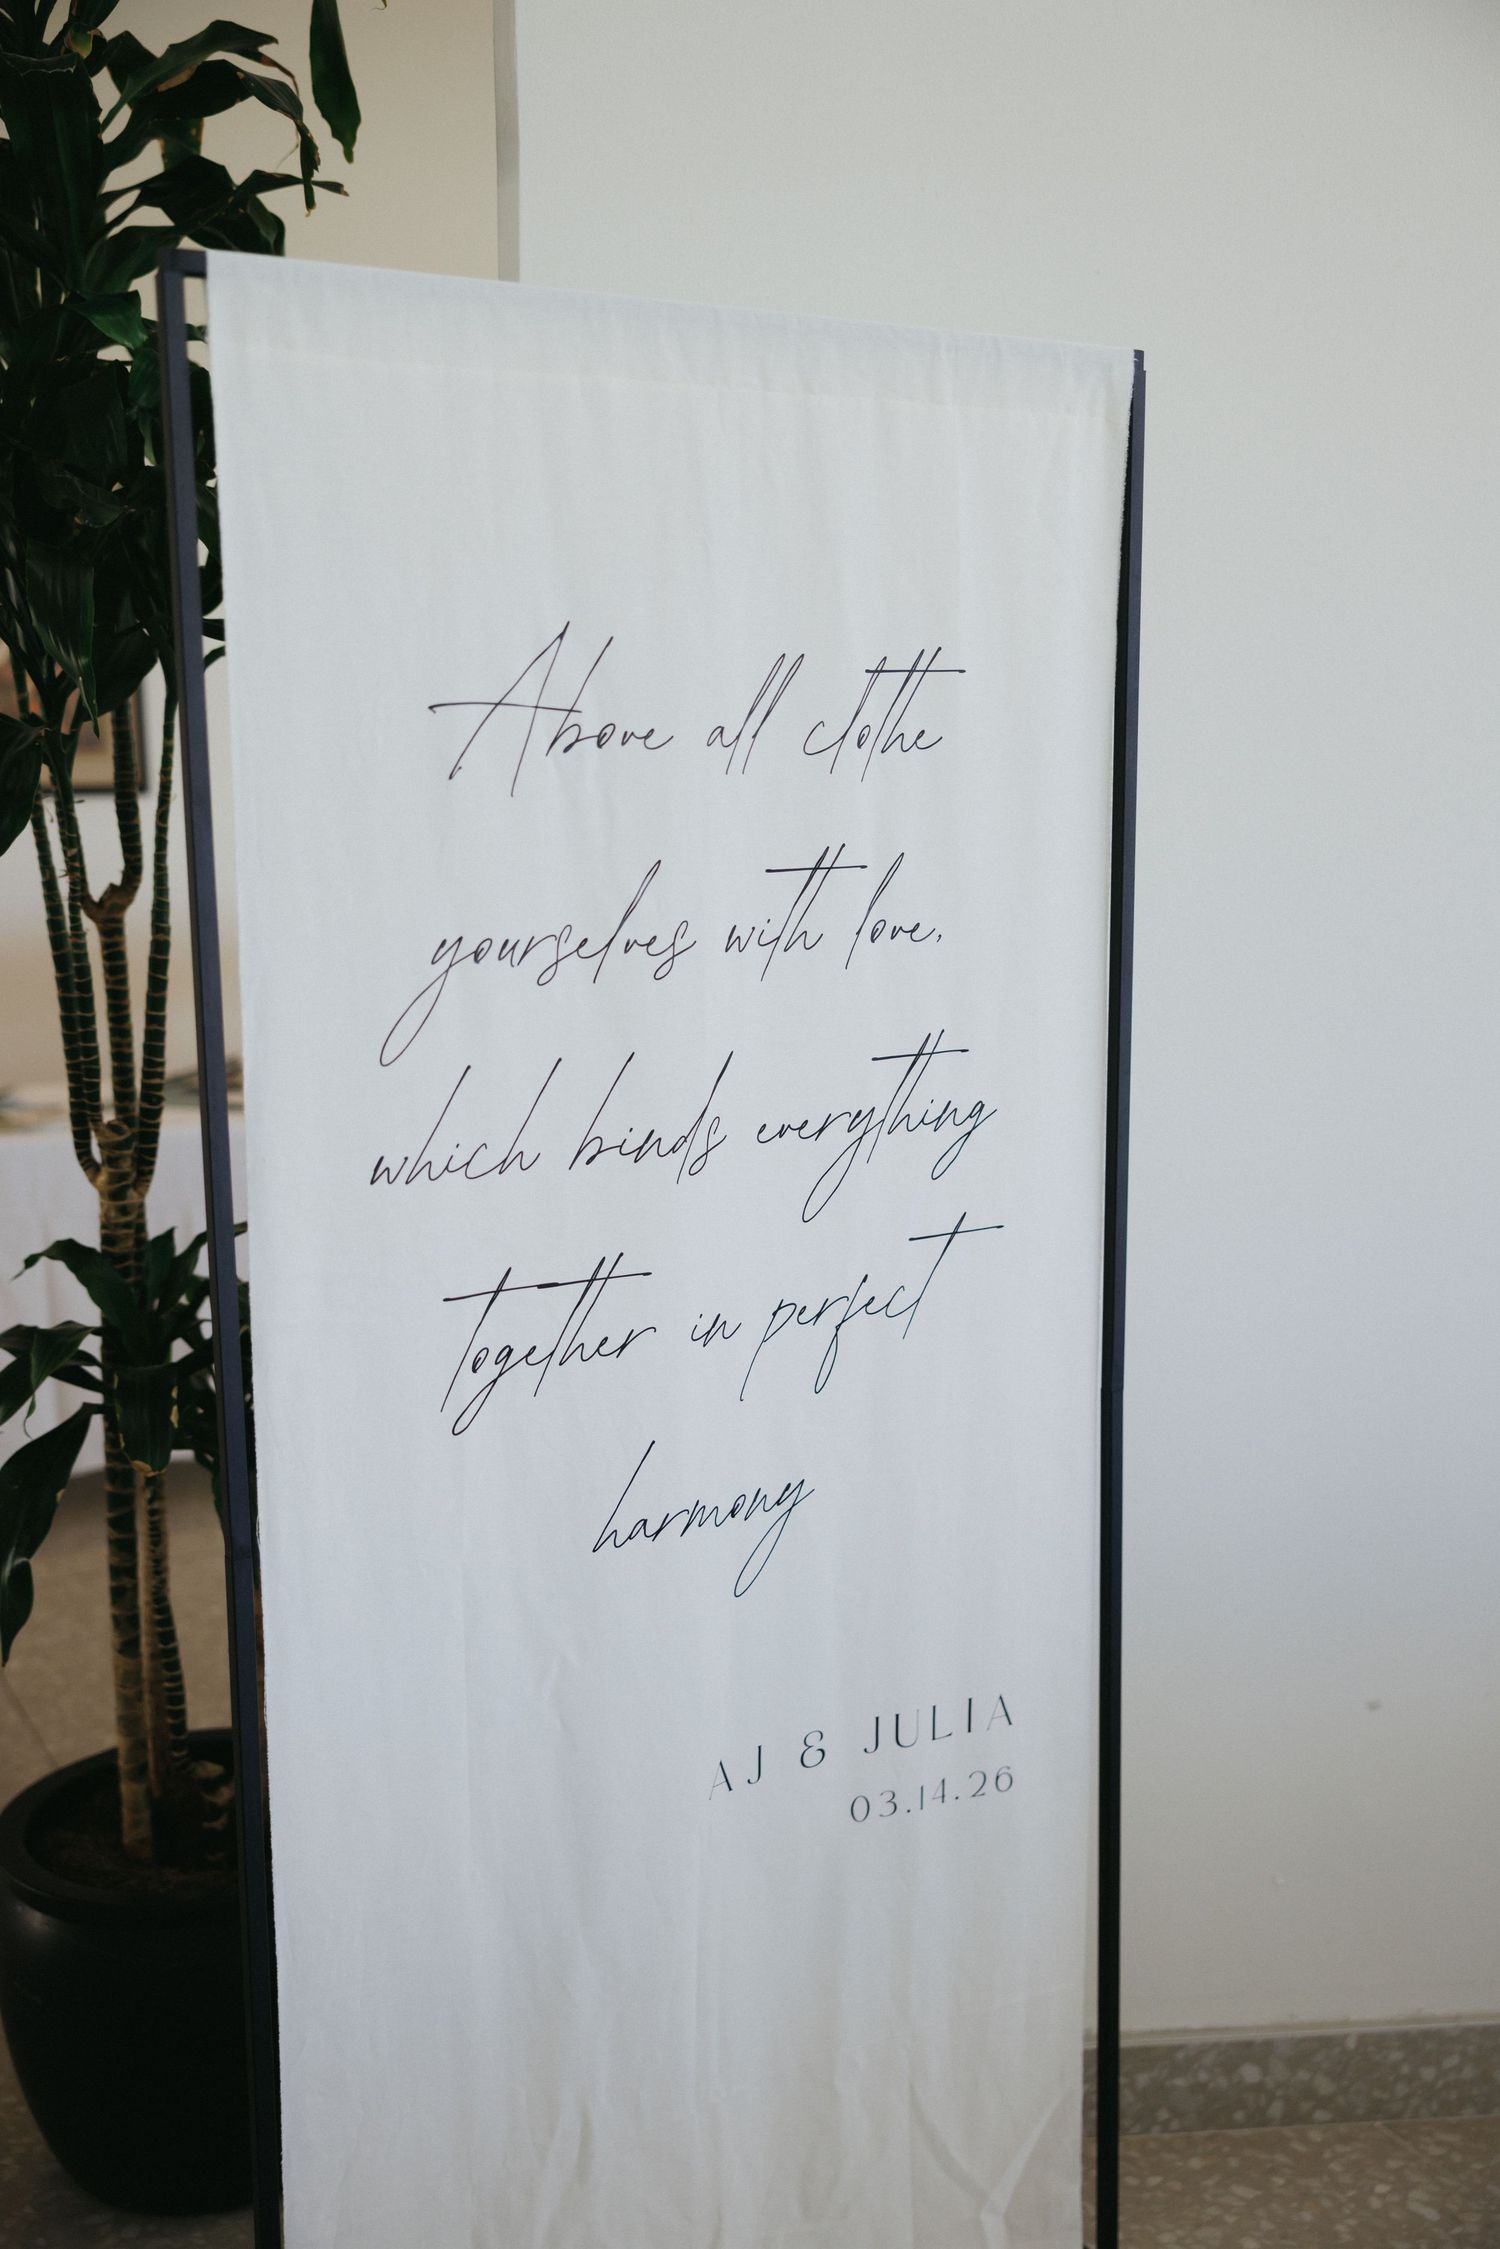 Above all clothe
yourselves with love,
which binds everything
together in perfect
harmony
AJ & JULIA
03.14.26